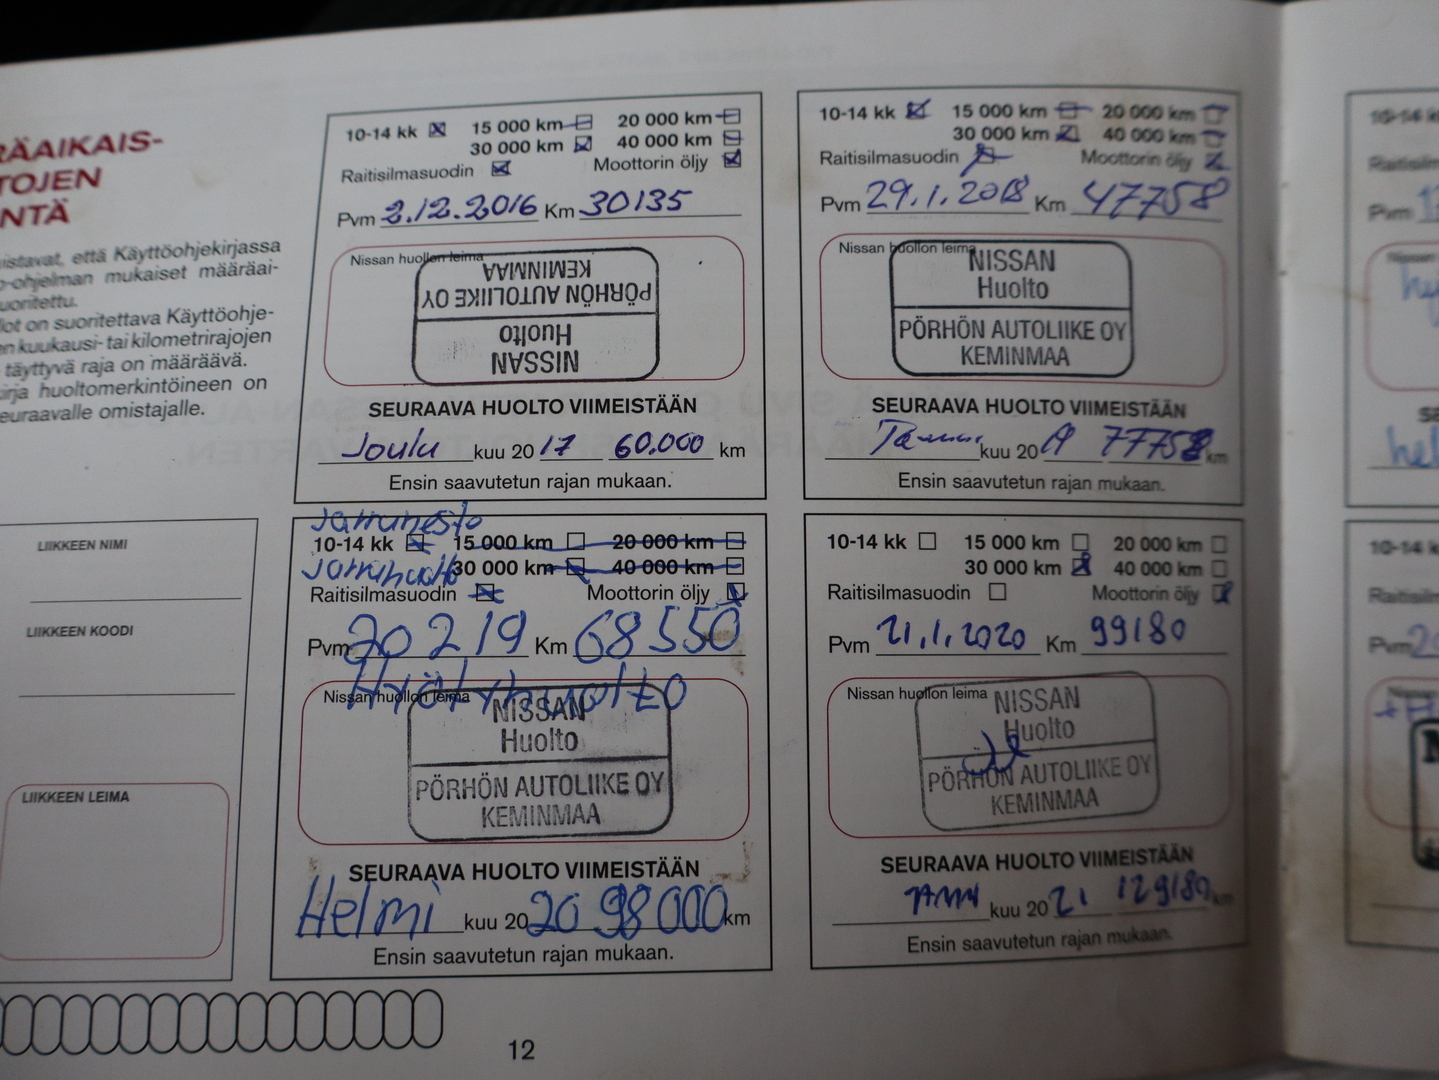 RÄAIKAIS-
TOJEN
NTÄ
istavat, että Käyttöohjekirjassa
o-ohjelman mukaiset määräai-
uoritettu.
lot on suoritettava Käyttöohje-
en kuukausi- tai kilometrirajojen
täyttyvä raja on määräävä.
kirja huoltomerkintöineen on
seuraavalle omistajalle.
LIIKKEEN NIMI
LIIKKEEN KOODI
LIIKKEEN LEIMA
10-14 kk 15 000 km 20 000 km
30 000 km 40 000 km
Raitisilmasuodin Moottorin öljy
Pvm 2.12.2016 Km 30135
Nissan huollon leima
NISSAN
Huolto
PÖRHÖN AUTOLIIKE OY
KEMINMAA
SEURAAVA HUOLTO VIIMEISTÄÄN
Joulu kuu 20 17 60.000 km
Ensin saavutetun rajan mukaan.
10-14 kk 15 000 km 20 000 km
30 000 km 40 000 km
Raitisilmasuodin Moottorin öljy
Pvm 29.1.2018 Km 47758
Nissan huollon leima
NISSAN
Huolto
PÖRHÖN AUTOLIIKE OY
KEMINMAA
SEURAAVA HUOLTO VIIMEISTÄÄN
kuu 20 19 77758 km
Ensin saavutetun rajan mukaan.
Jarruneste
10-14 kk 15 000 km 20 000 km
Jarruhuolto 30 000 km 40 000 km
Raitisilmasuodin Moottorin öljy
Pvm 20 2 19 Km 68550
Hyötyhuolto
Nissan huollon leima
NISSAN
Huolto
PÖRHÖN AUTOLIIKE OY
KEMINMAA
SEURAAVA HUOLTO VIIMEISTÄÄN
Helmi kuu 20 20 98000 km
Ensin saavutetun rajan mukaan.
10-14 kk 15 000 km 20 000 km
30 000 km 40 000 km
Raitisilmasuodin Moottorin öljy
Pvm 21.1.2020 Km 99180
Nissan huollon leima
NISSAN
Huolto
PÖRHÖN AUTOLIIKE OY
KEMINMAA
SEURAAVA HUOLTO VIIMEISTÄÄN
kuu 20 21 129180 km
Ensin saavutetun rajan mukaan.
12